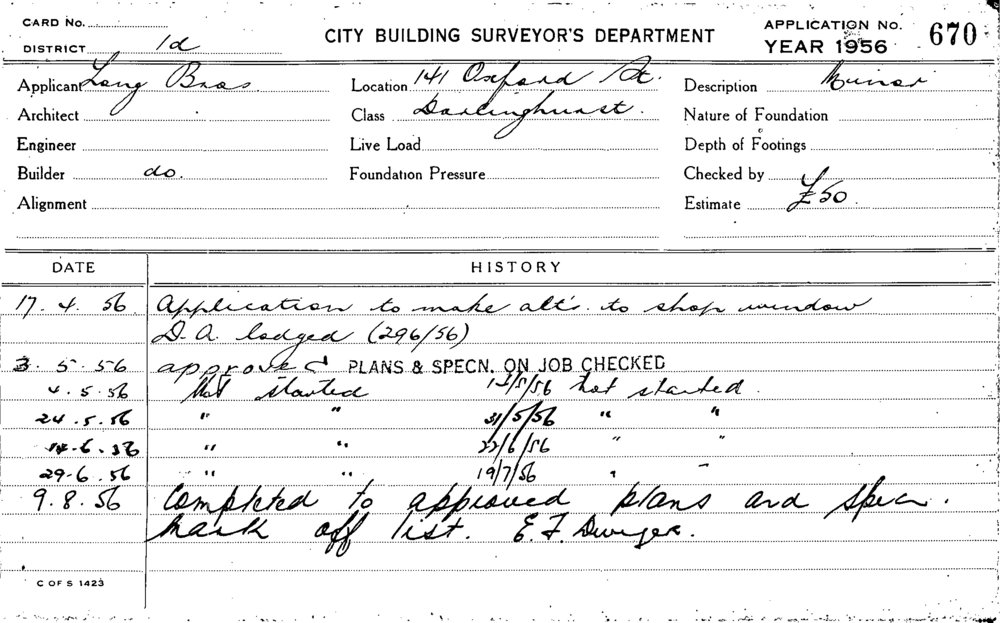 CARD No.
DISTRICT 1d
CITY BUILDING SURVEYOR'S DEPARTMENT
APPLICATION No. 670
YEAR 1956
Applicant Long Bros. Location 141 Oxford St. Description Minor
Architect Class Darlinghurst. Nature of Foundation
Engineer Live Load Depth of Footings
Builder do. Foundation Pressure Checked by
Alignment Estimate £50
DATE HISTORY
17. 4. 56. Application to make alt's. to shop window
D.A. lodged (296/56)
3. 5. 56 approved PLANS & SPECN. ON JOB CHECKED
4. 5. 56 Not started /5/56 not started.
24. 5. 56 " " 31/5/56 " "
14. 6. 56 " " 22/6/56 " "
29. 6. 56 " " 19/7/56 " "
9. 8. 56 Completed to approved plans and specn.
Mark off list. E. F. Dwyer.
C OF S 1423